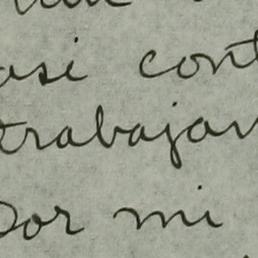 asi cont
trabajan
por mi